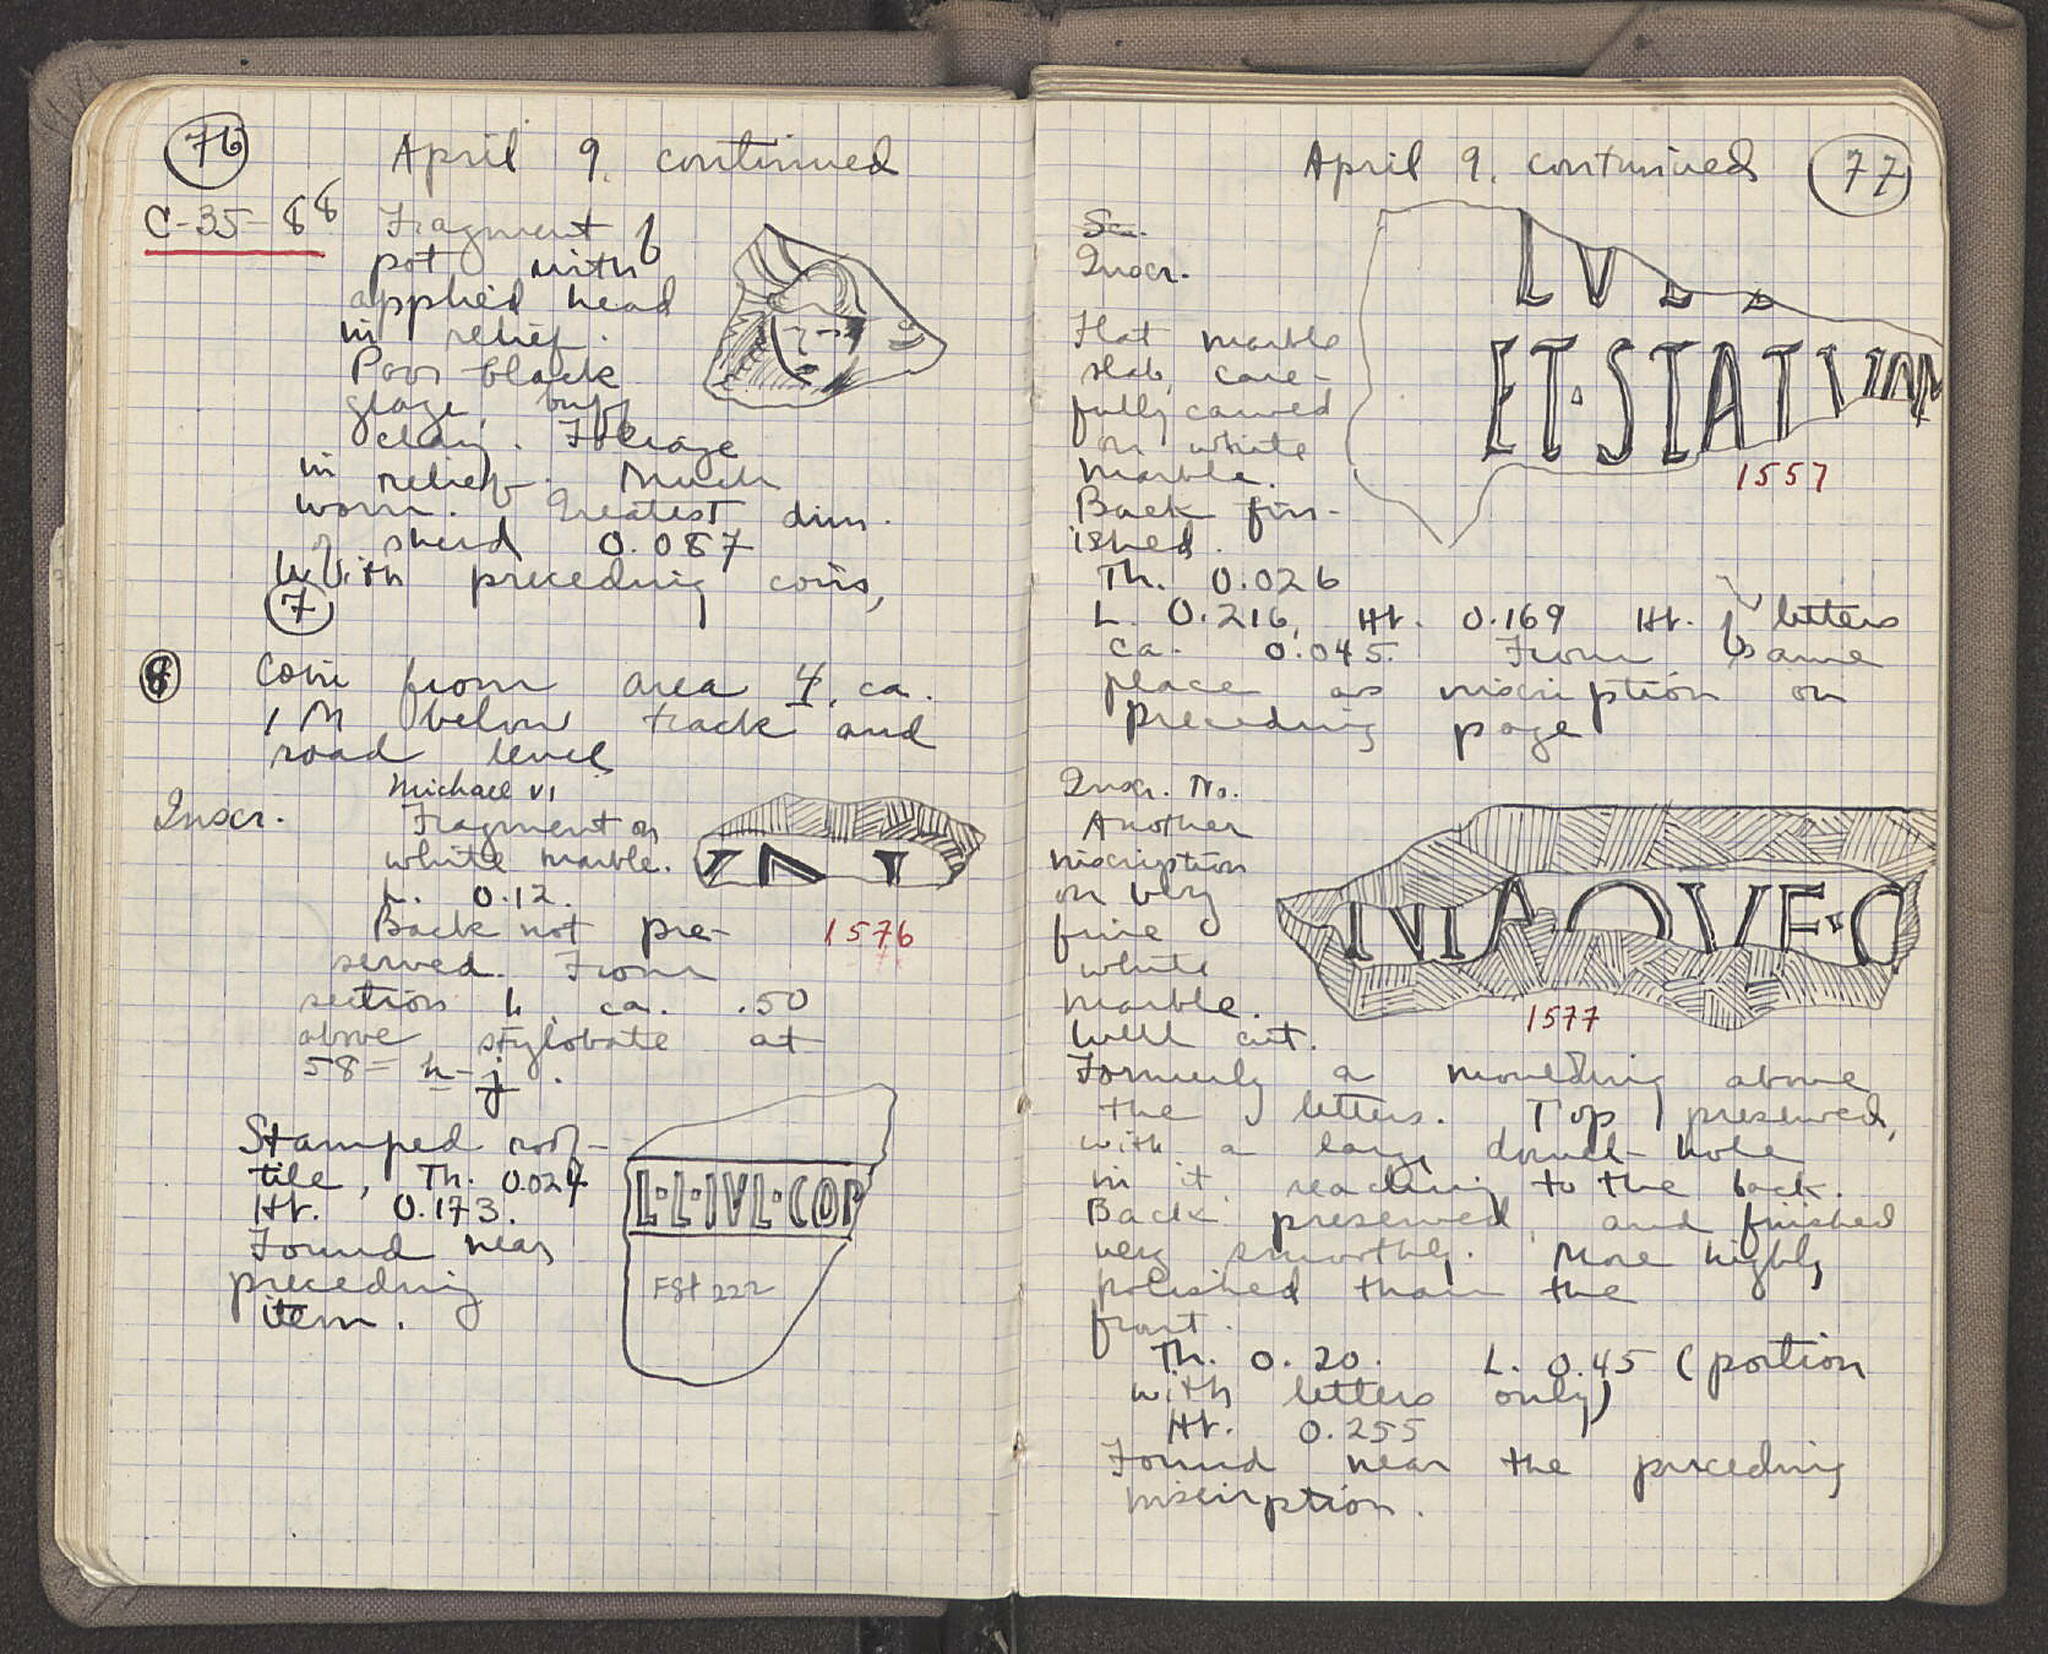 76
April 9. continued
C-35-88
Fragment of
pot with
applied head
in relief.
Poor black
glaze, buff
clay. Foliage
in relief. Much
worn. Greatest dim.
of sherd 0.087
With preceding coins,
7
8 Coin from area 4, ca.
1 M below track and
road level
Michael VI
Inscr.
Fragment on
white marble.
L. 0.12.
Back not pre-
served. From
section h ca. .50
above stylobate at
58= h-j.
1576
Stamped roof-
tile, Th. 0.024
Ht. 0.173.
Found near
preceding
item.
L·L·IVL·COR
FSt 222
April 9. continued
77
Inscr.
Flat marble
slab, care-
fully carved
on white
marble.
Back fin-
ished.
LV
ET·STATVIM
1557
Th. 0.026
L. 0.216, Ht. 0.169 Ht. of letters
ca. 0.045. From same
place as inscription on
preceding page
Inscr. No.
Another
inscription
on very
fine
white
marble.
Well cut.
NIAQVE·C
1577
Formerly a moulding above
the letters. Top preserved,
with a large dowel-hole
in it, reaching to the back.
Back preserved, and finished
very smoothly. More highly
polished than the
front.
Th. 0.20. L. 0.45 (portion
with letters only)
Ht. 0.255
Found near the preceding
inscription.